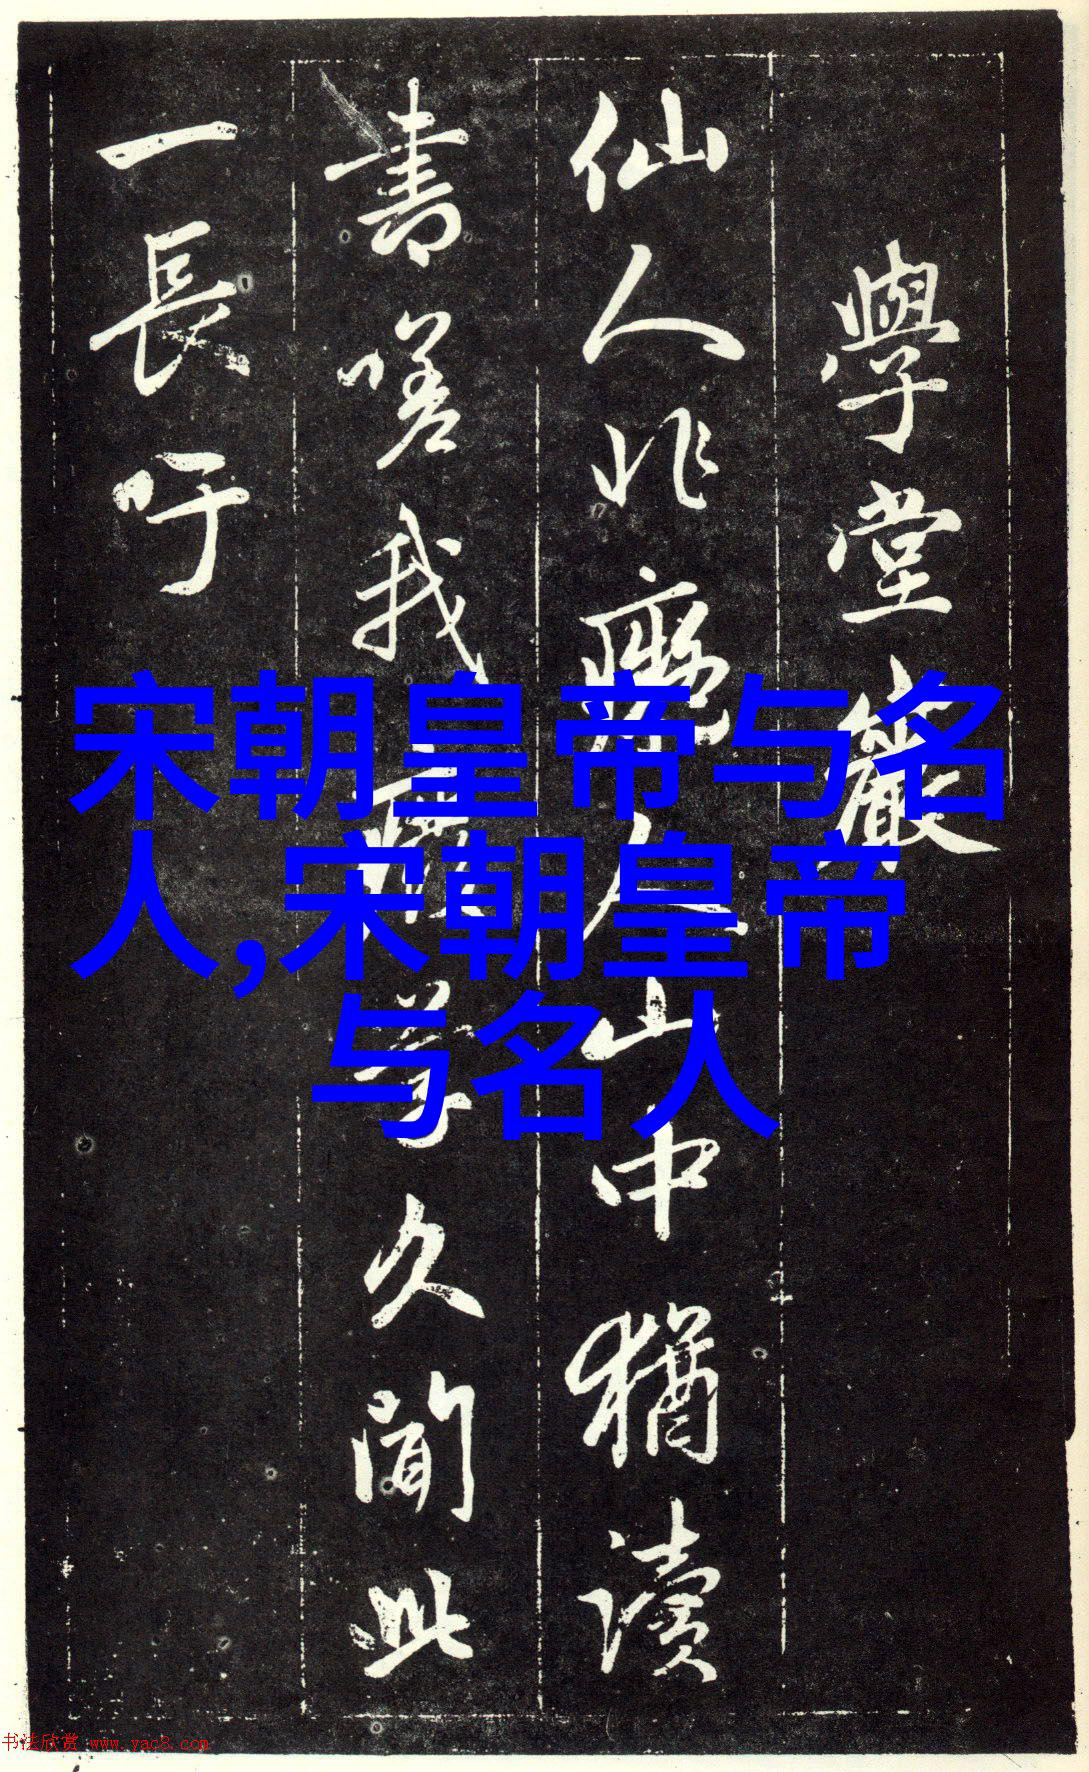 學堂巖
仙人非癡人山中猶讀
書嗟我廢學久聞此
一長吁
宋朝皇帝与名
人,宋朝皇帝
与名人
书法欣赏 www.yac8.com